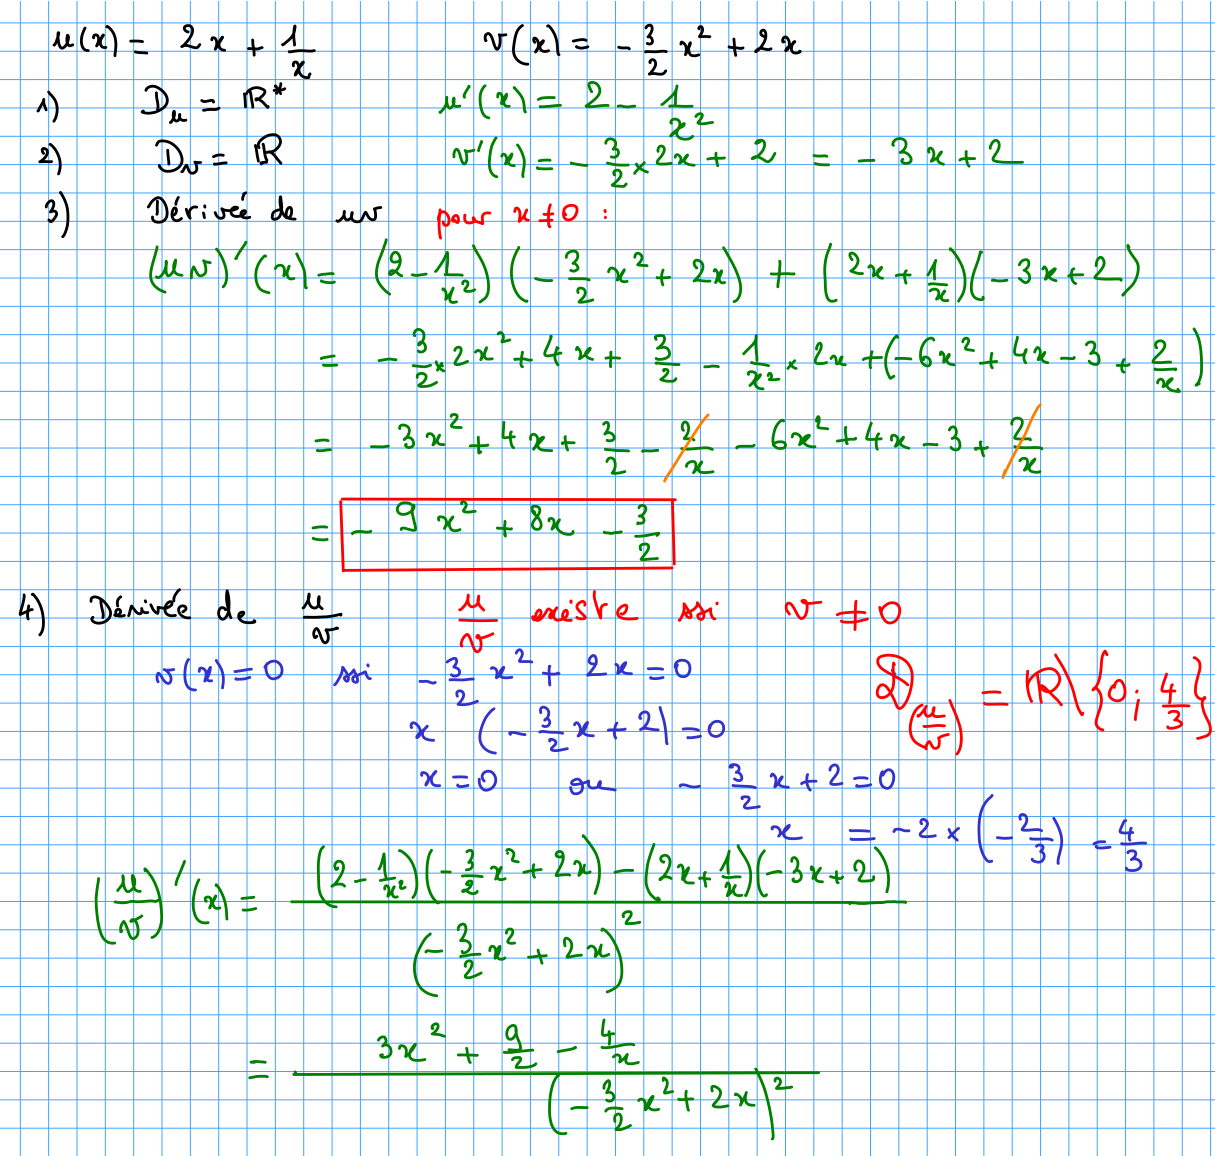 u(x) = 2x + 1/x v(x) = - 3/2 x² + 2x
1) D_u = ℝ* u'(x) = 2 - 1/x²
2) D_v = ℝ v'(x) = - 3/2 × 2x + 2 = - 3x + 2
3) Dérivée de uv pour x ≠ 0 :
(uv)'(x) = (2 - 1/x²)(- 3/2 x² + 2x) + (2x + 1/x)(- 3x + 2)
= - 3/2 × 2x² + 4x + 3/2 - 1/x² × 2x + (- 6x² + 4x - 3 + 2/x)
= - 3x² + 4x + 3/2 - 2/x - 6x² + 4x - 3 + 2/x
= - 9x² + 8x - 3/2
4) Dérivée de u/v u/v existe ssi v ≠ 0
v(x) = 0 ssi - 3/2 x² + 2x = 0 D_(u/v) = ℝ\{0; 4/3}
x (- 3/2 x + 2) = 0
x = 0 ou - 3/2 x + 2 = 0
x = - 2 × (- 2/3) = 4/3
(u/v)'(x) = ((2 - 1/x²)(- 3/2 x² + 2x) - (2x + 1/x)(- 3x + 2)) / (- 3/2 x² + 2x)²
= (3x² + 9/2 - 4/x) / (- 3/2 x² + 2x)²